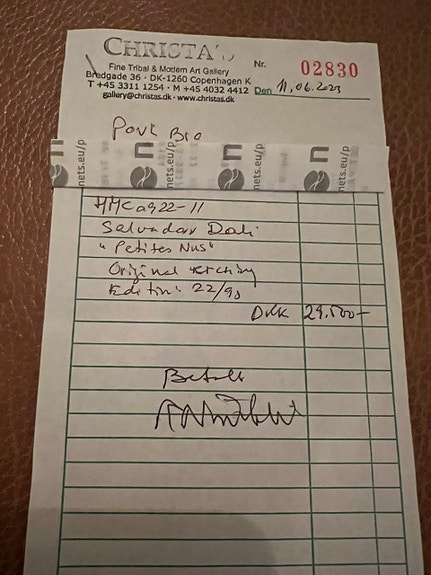 CHRISTA'S
Fine Tribal & Modern Art Gallery
Bredgade 36 · DK-1260 Copenhagen K
T +45 3311 1254 · M +45 4032 4412
gallery@christas.dk · www.christas.dk
Nr. 02830
Den 11,06.2023
nets.eu/p nets.eu/p nets.eu/p nets.eu/p
Salvador Dali
"Petites Nus"
Original etching
Edition: 22/90
DKK 29.500-
Betalt